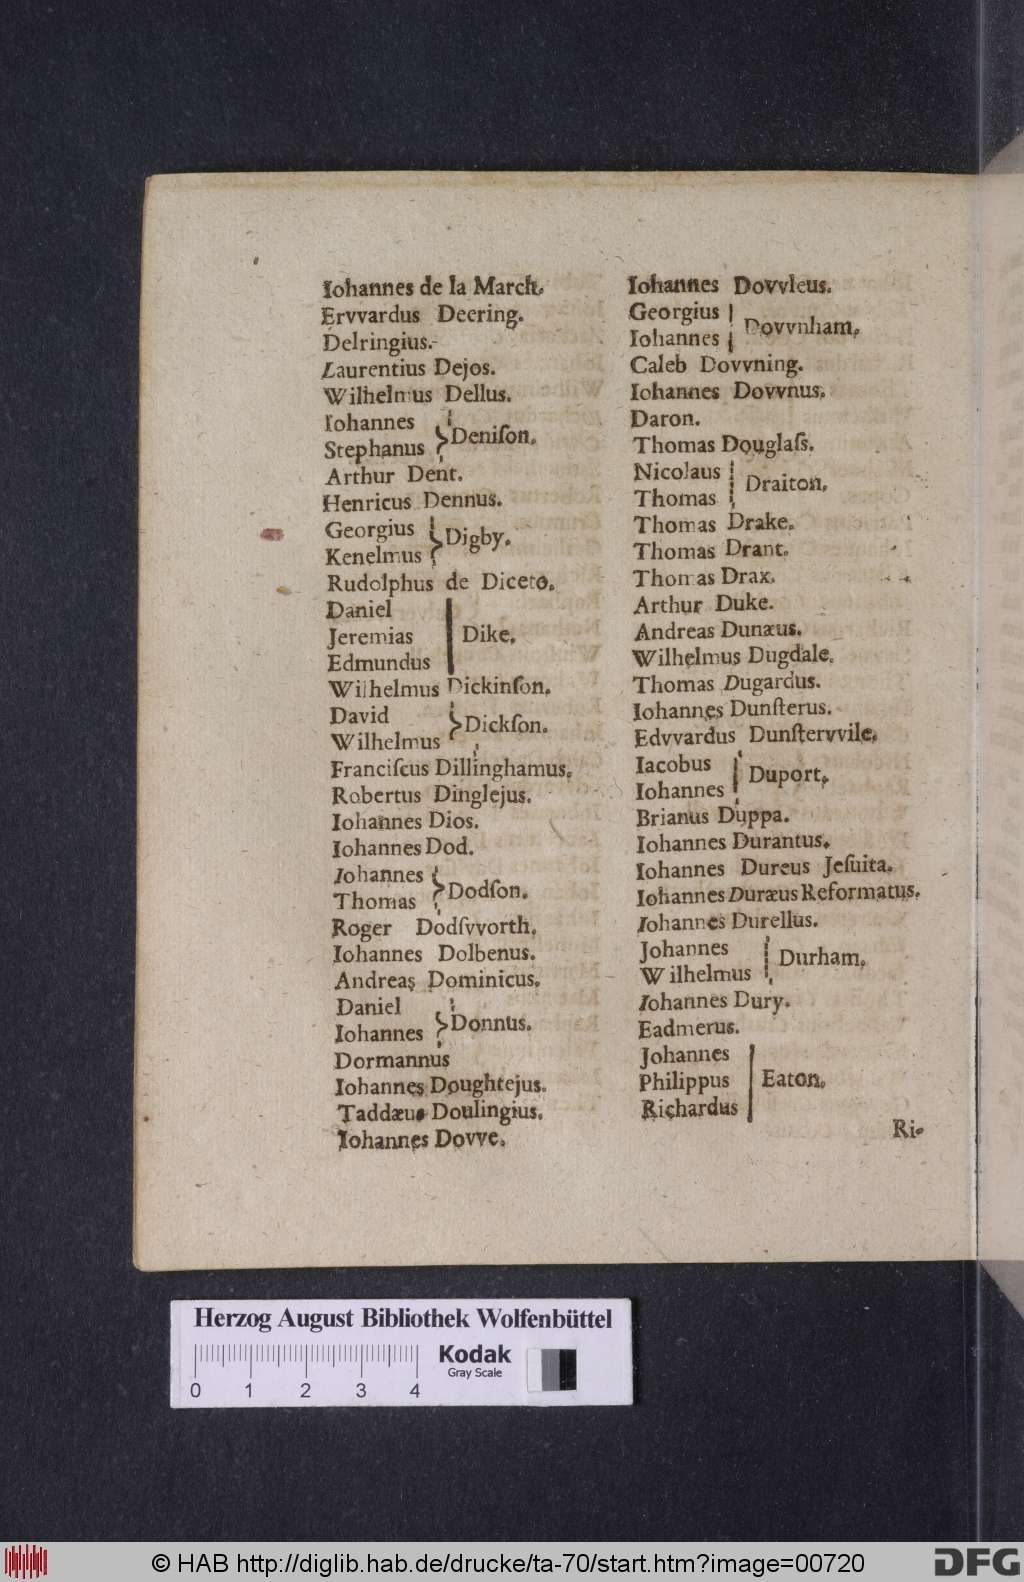 Iohannes de la March.
Ervvardus Deering.
Delringius.
Laurentius Dejos.
Wilhelmus Dellus.
Iohannes
Stephanus } Deniſon.
Arthur Dent.
Henricus Dennus.
Georgius
Kenelmus } Digby.
Rudolphus de Diceto.
Daniel
Jeremias | Dike.
Edmundus
Wilhelmus Dickinſon.
David
Wilhelmus } Dickſon.
Franciſcus Dillinghamus.
Robertus Dinglejus.
Iohannes Dios.
Iohannes Dod.
Iohannes
Thomas } Dodſon.
Roger Dodſvvorth.
Iohannes Dolbenus.
Andreas Dominicus.
Daniel
Iohannes } Donnus.
Dormannus
Iohannes Doughtejus.
Taddæus Doulingius.
Iohannes Dovve.
Iohannes Dovvleus.
Georgius
Iohannes } Dovvnham.
Caleb Dovvning.
Iohannes Dovvnus.
Daron.
Thomas Douglaſs.
Nicolaus
Thomas | Draiton.
Thomas Drake.
Thomas Drant.
Thomas Drax.
Arthur Duke.
Andreas Dunæus.
Wilhelmus Dugdale.
Thomas Dugardus.
Iohannes Dunſterus.
Edvvardus Dunſtervvile.
Iacobus
Iohannes | Duport.
Brianus Duppa.
Iohannes Durantus.
Iohannes Dureus Jeſuita.
Iohannes Duræus Reformatus.
Iohannes Durellus.
Johannes
Wilhelmus | Durham.
Iohannes Dury.
Eadmerus.
Johannes
Philippus | Eaton.
Richardus
Ri-
Herzog August Bibliothek Wolfenbüttel
Kodak
Gray Scale
0 1 2 3 4
© HAB http://diglib.hab.de/drucke/ta-70/start.htm?image=00720
DFG